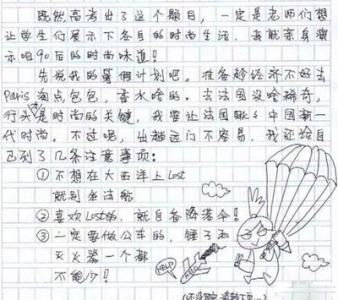 既然高考出了这个题目，一定是老师们想
让学生们展示下各自的时尚生活，我就亲身演
示吧90后的时尚味道！
先说我的暑假计划吧。准备趁经济不好去
Paris淘点包包，香水啥的。去法国没啥稀奇，
行头是时尚的关键，我要让法国瞅瞅中国新一
代时尚。不过呢，出趟远门不容易，我还给自
己列了几条注意事项：
①不想在大西洋上Lost
就别坐法航
②喜欢Lost的，就自备降落伞！
③一定要做公车的，锤子和
灭火器一个都
不能少！
HELP
(还没完，请翻下页...)